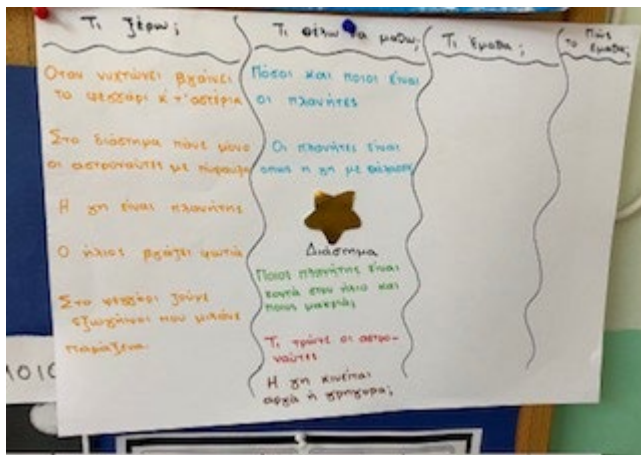 Τι ξέρω;
Όταν νυχτώνει βγαίνει
το φεγγάρι κ' τ' αστέρια
Στο διάστημα πάνε μόνο
οι αστροναύτες με πύραυλο
Η γη είναι πλανήτης
Ο ήλιος βγάζει φωτιά
Στο φεγγάρι ζούνε
εξωγήινοι που μιλάνε
παράξενα.
Τι θέλω να μάθω;
Πόσοι και ποιοι είναι
οι πλανήτες
Οι πλανήτες είναι
όπως η γη με
Διάστημα
Ποιος πλανήτης είναι
κοντά στον ήλιο και
ποιος μακριά;
Τι τρώνε οι αστρο-
ναύτες
Η γη κινείται
αργά ή γρήγορα;
Τι έμαθα;
Πώς
το έμαθα;